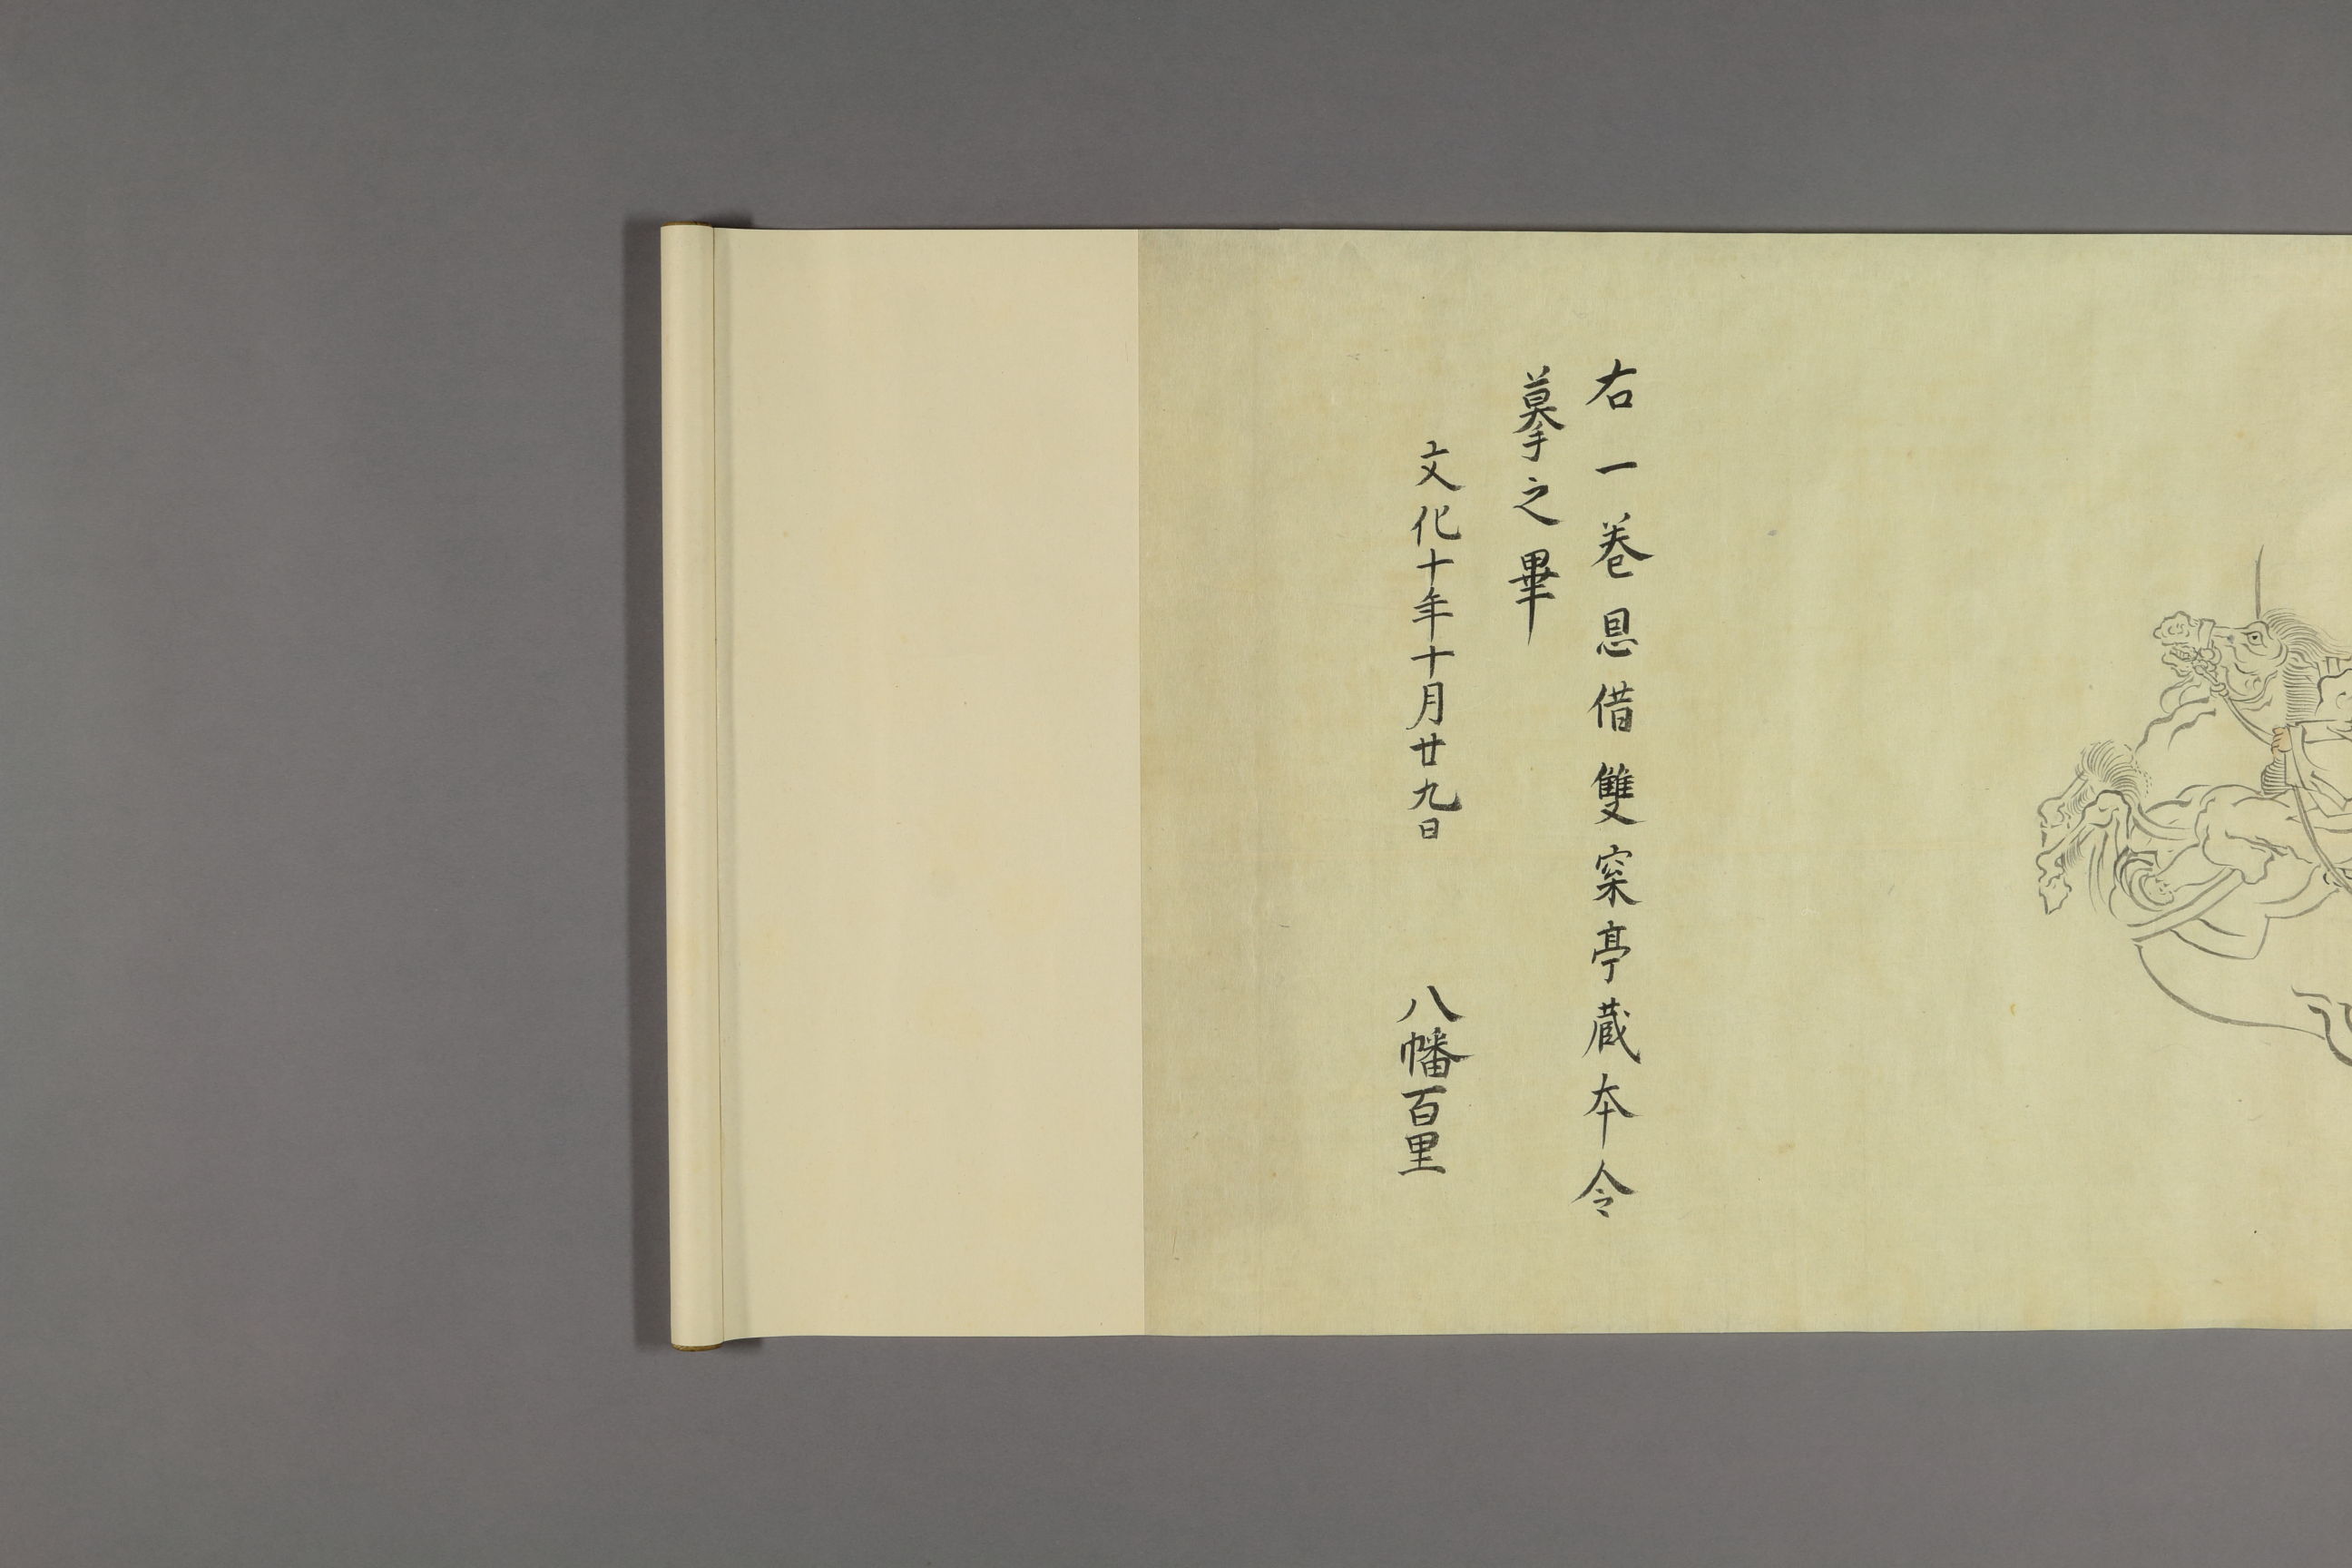 右一巻恩借雙寀亭蔵本令
摹之畢
文化十年十月廿九日
八幡百里